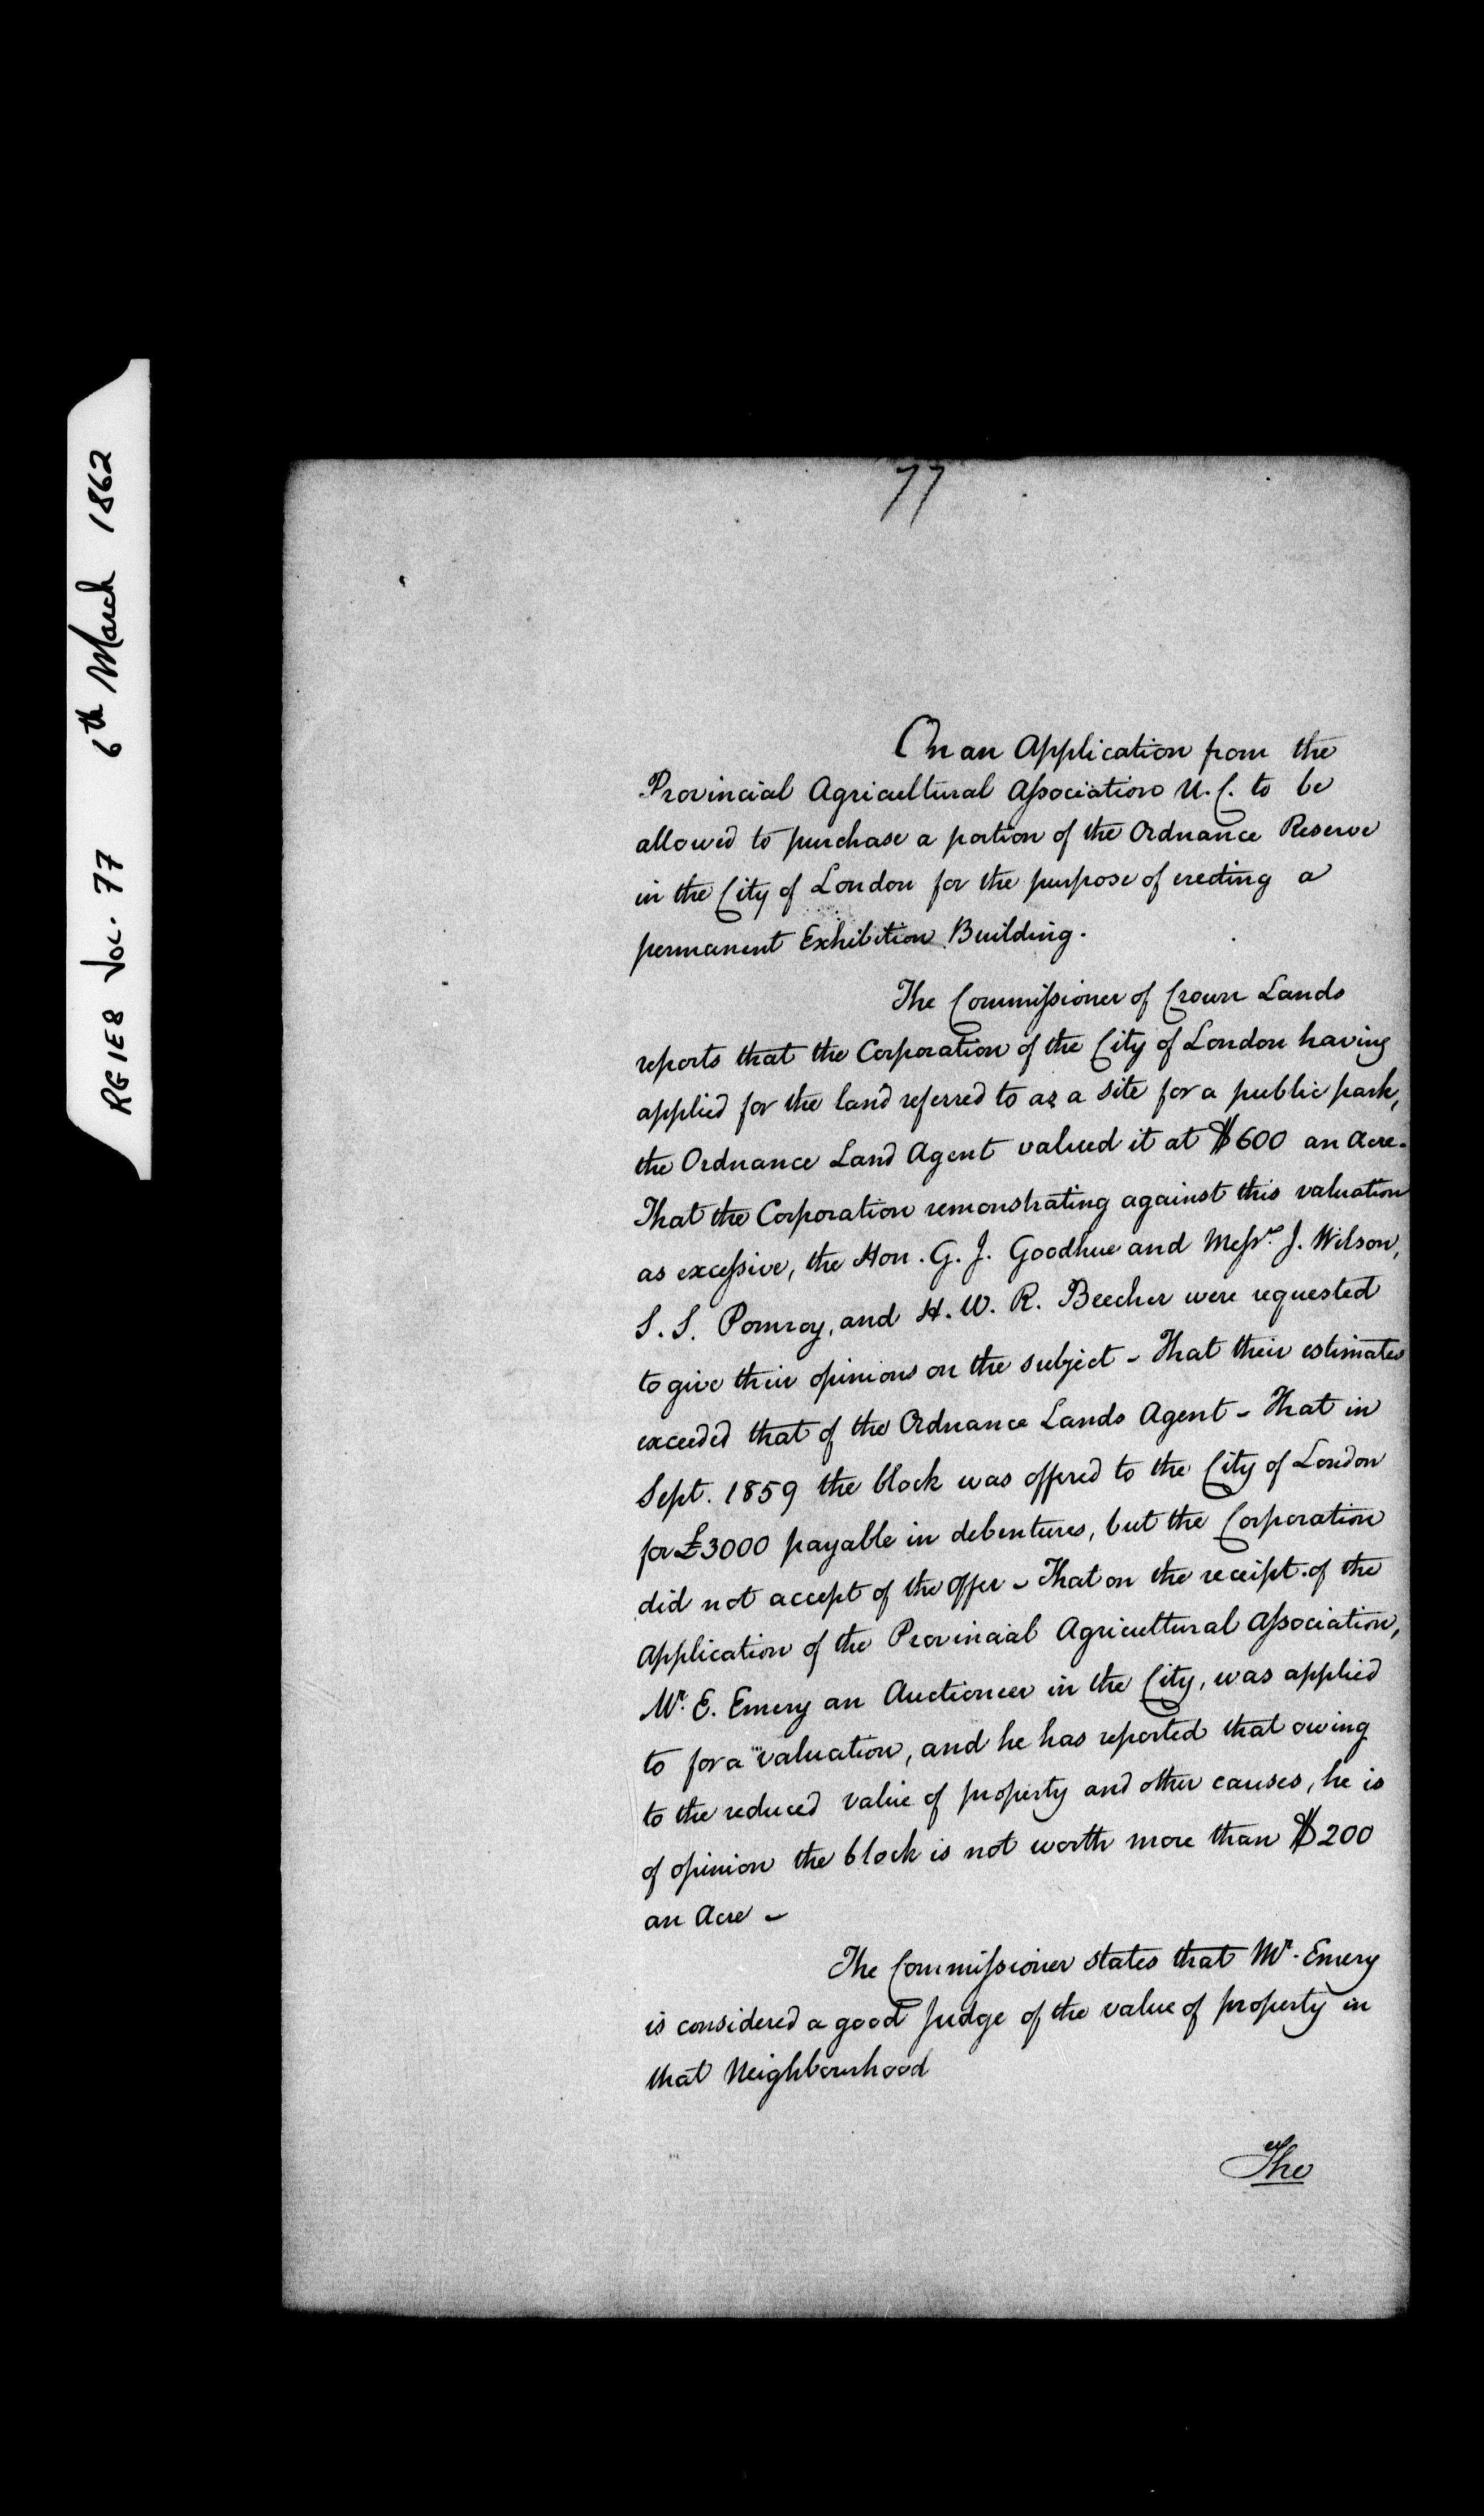 RG 1 E 8 Vol. 77 6th March 1862
77
On an Application from the
Provincial Agricultural Association U.C. to be
allowed to purchase a portion of the Ordnance Reserve
in the City of London for the purpose of erecting a
permanent Exhibition Building.
The Commissioner of Crown Lands
reports that the Corporation of the City of London having
applied for the land referred to as a site for a public park,
the Ordnance Land Agent valued it at $600 an Acre.
That the Corporation remonstrating against this valuation
as excessive, the Hon. G. J. Goodhue and Messrs. J. Wilson,
S. S. Pomroy, and H. W. R. Beecher were requested
to give their opinions on the subject - That their estimates
exceeded that of the Ordnance Lands Agent - That in
Sept. 1859 the block was offered to the City of London
for £3000 payable in debentures, but the Corporation
did not accept of the offer - That on the receipt of the
Application of the Provincial Agricultural Association,
Mr. E. Emery an Auctioneer in the City, was applied
to for a valuation, and he has reported that owing
to the reduced value of property and other causes, he is
of opinion the block is not worth more than $200
an Acre -
The Commissioner states that Mr. Emery
is considered a good Judge of the value of property in
that Neighbourhood
The